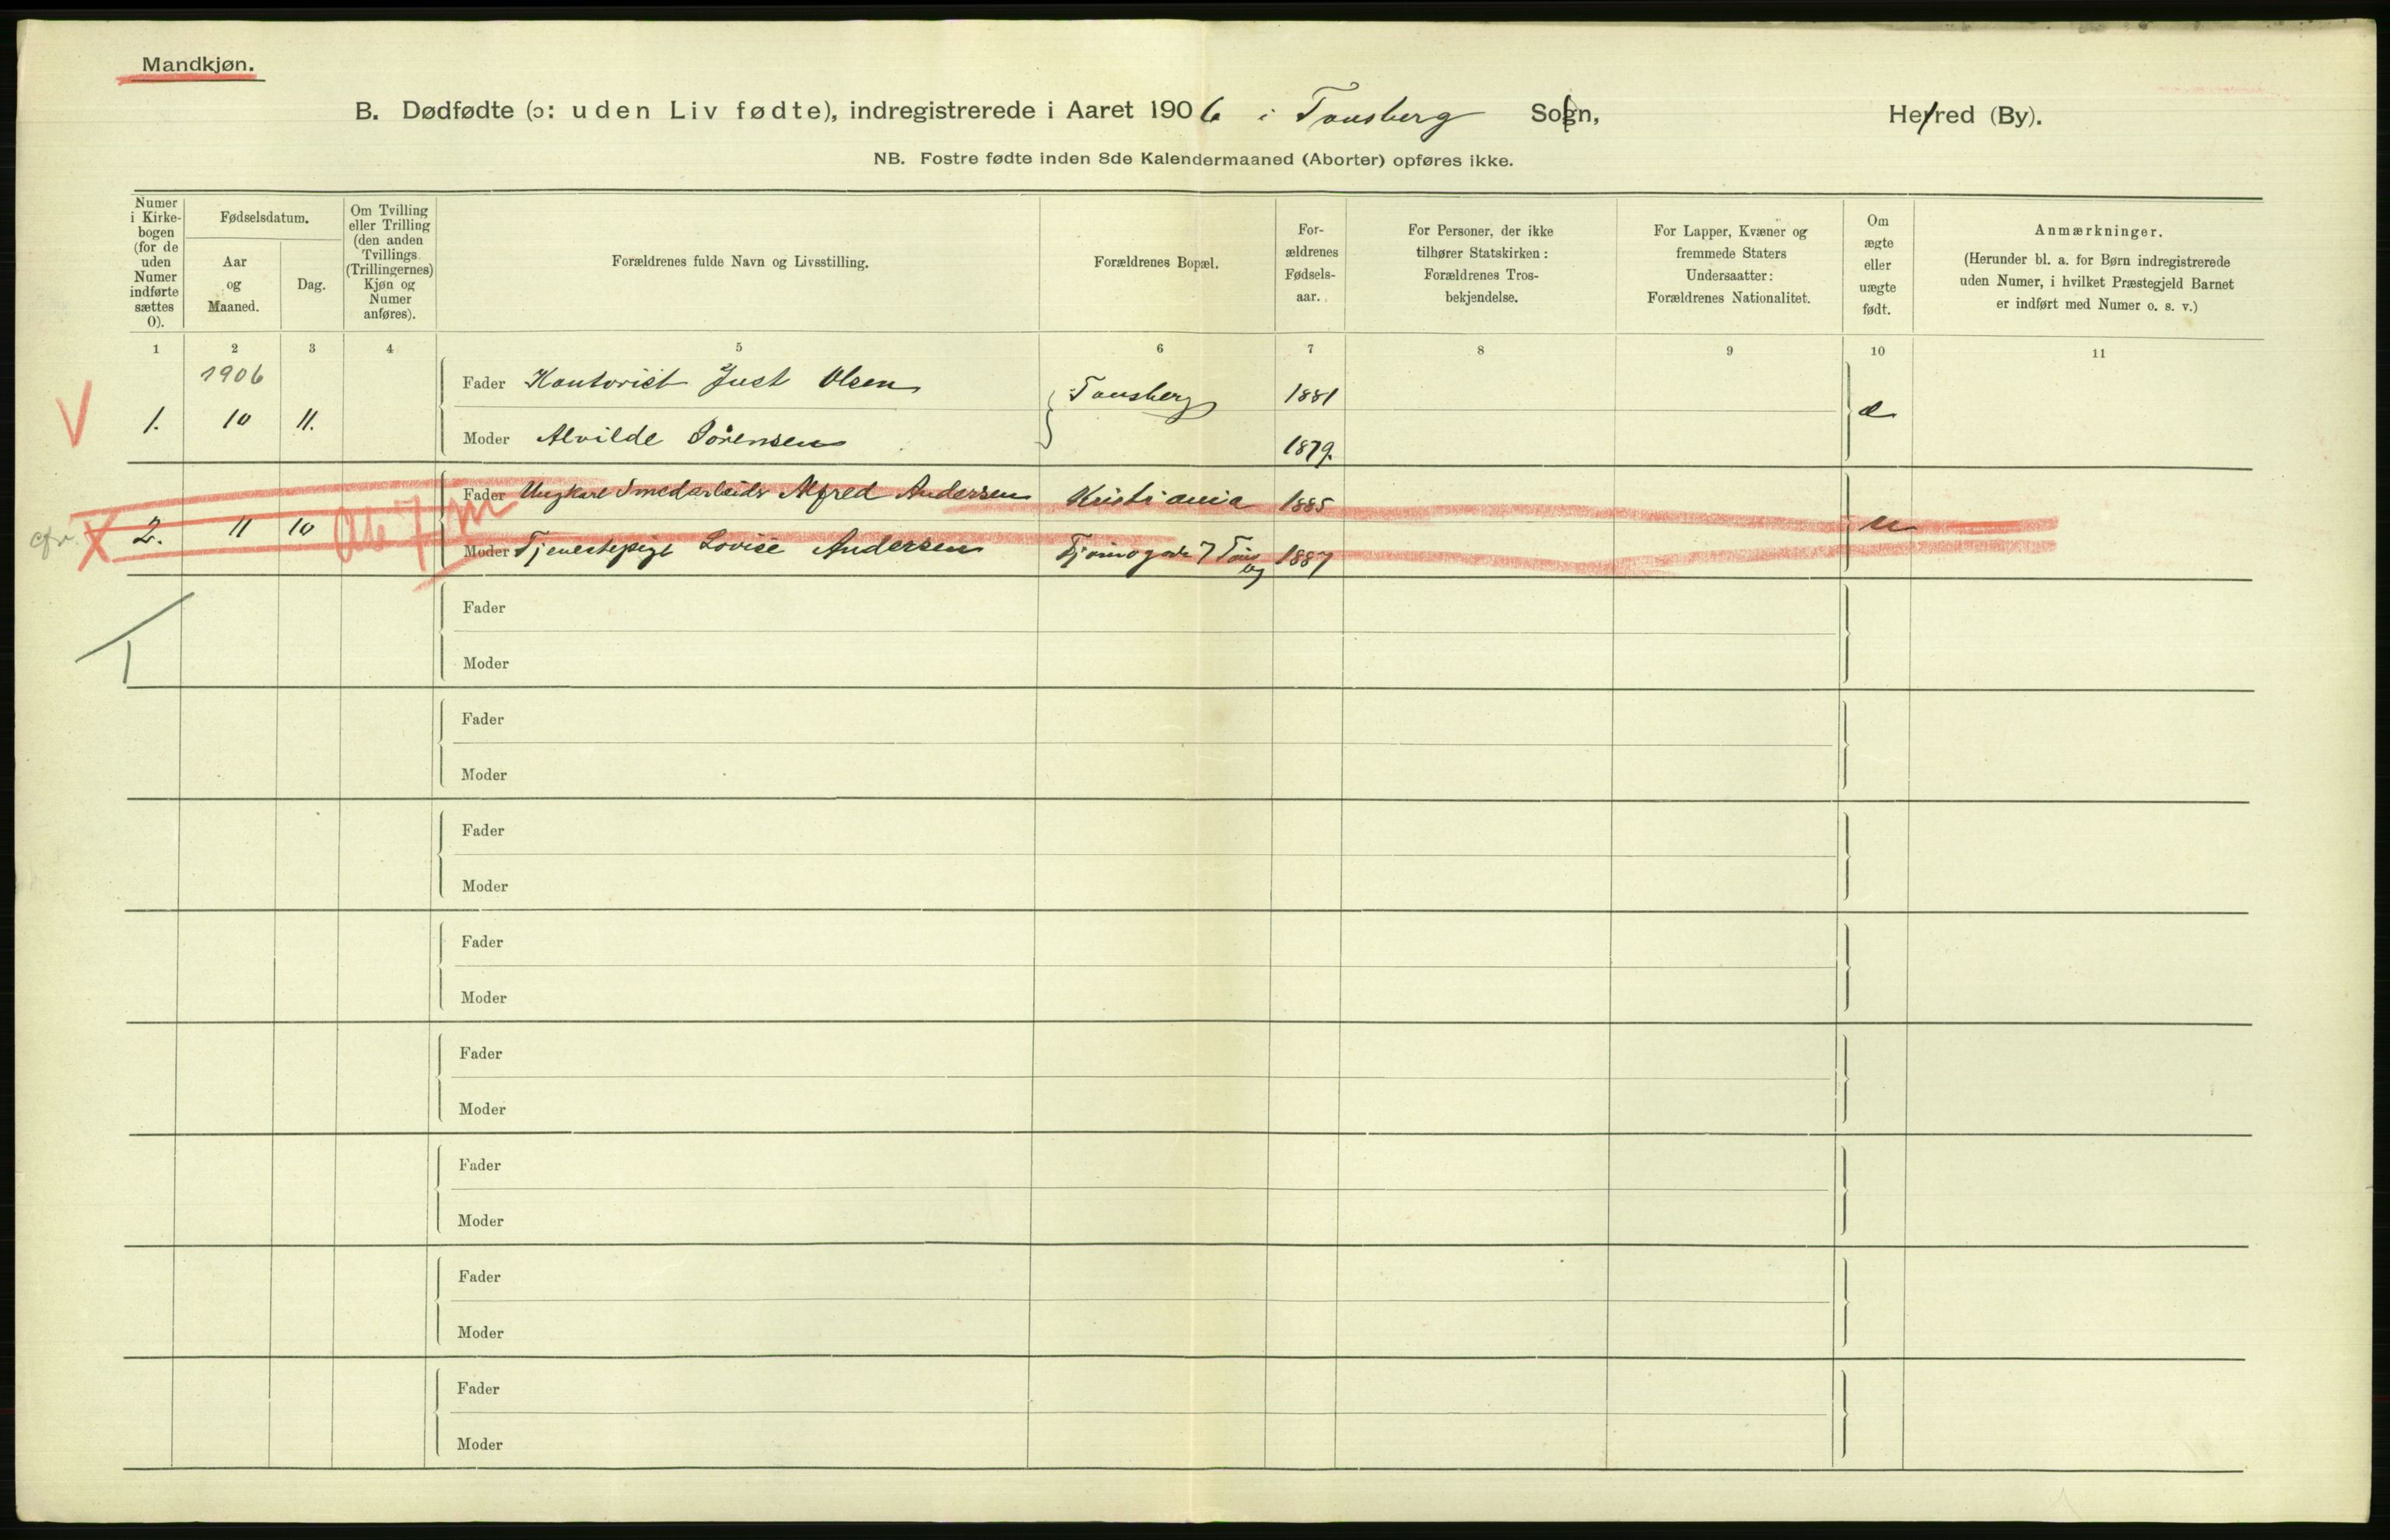 Mandkjøn.
B. Dødfødte (ɔ: uden Liv fødte), indregistrerede i Aaret 1906 i Tønsberg Sogn, Herred (By).
NB. Fostre fødte inden 8de Kalendermaaned (Aborter) opføres ikke.
Numer i Kirke-bogen (for de uden Numer indførte sættes 0).
Fødselsdatum.
Aar og Maaned.
Dag.
Om Tvilling eller Trilling (den anden Tvillings (Trillingernes) Kjøn og Numer anføres).
Forældrenes fulde Navn og Livsstilling.
Forældrenes Bopæl.
For-ældrenes Fødsels-aar.
For Personer, der ikke tilhører Statskirken: Forældrenes Tros-bekjendelse.
For Lapper, Kvæner og fremmede Staters Undersaatter: Forældrenes Nationalitet.
Om ægte eller uægte født.
Anmærkninger.
(Herunder bl. a. for Børn indregistrerede uden Numer, i hvilket Præstegjeld Barnet er indført med Numer o. s. v.)
1 2 3 4 5 6 7 8 9 10 11
1906
V 1. 10 11.
Fader Kontorist Just Olsen Tønsberg 1881 æ
Moder Alvilde Sørensen 1879.
cfr. X 2. 11 10
Fader Ungkarl Smedarbeider Alfred Andersen Kristiania 1885 u
Moder Tjenestepige Lovise Andersen 1887
Fader
Moder
Fader
Moder
Fader
Moder
Fader
Moder
Fader
Moder
Fader
Moder
Fader
Moder
Fader
Moder